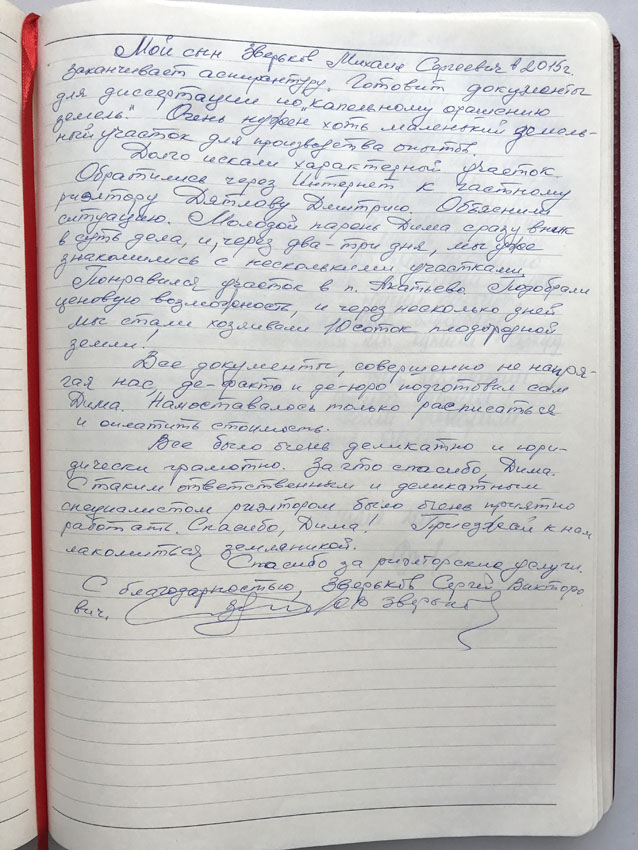 Мой сын Зверьков Михаил Сергеевич в 2015г.
заканчивает аспирантуру. Готовит документы
для диссертации по "капельному орашению
земель". Очень нужен хоть маленький земель-
ный участок для производства опытов.
Долго искали характерный участок.
Обратились через Интернет к частному
риэлтору Дятлову Дмитрию. Объяснили
ситуацию. Молодой парень Дима сразу вник
в суть дела, и, через два-три дня, мы уже
знакомились с несколькими участками.
Понравился участок в п. Акатьево. Подобрали
ценовую возможность, и через несколько дней
мы стали хозяевами 10 соток плодородной
земли!
Все документы, совершенно не напря-
гая нас, де-факто и де-юро подготовил сам
Дима. Нам оставалось только расписаться
и оплатить стоимость.
Все было очень деликатно и юри-
дически грамотно. За что спасибо, Дима.
С таким ответственным и деликатным
специалистом риэлтором было очень приятно
работать. Спасибо, Дима! Приезжай к нам
лакомиться земляникой.
Спасибо за риэлторские услуги.
С благодарностью, Зверьков Сергей Викторо
вич. С В Зверьков